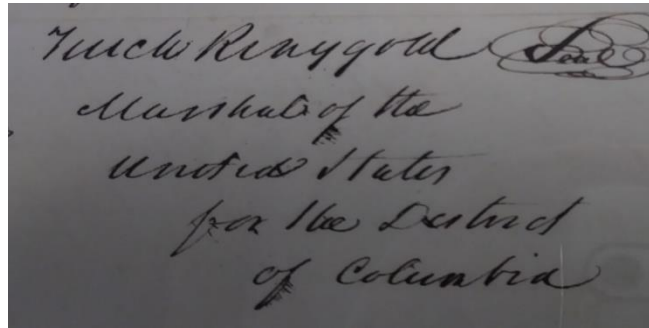 Tench Ringgold Seal
Marshal of the
United States
for the District
of Columbia